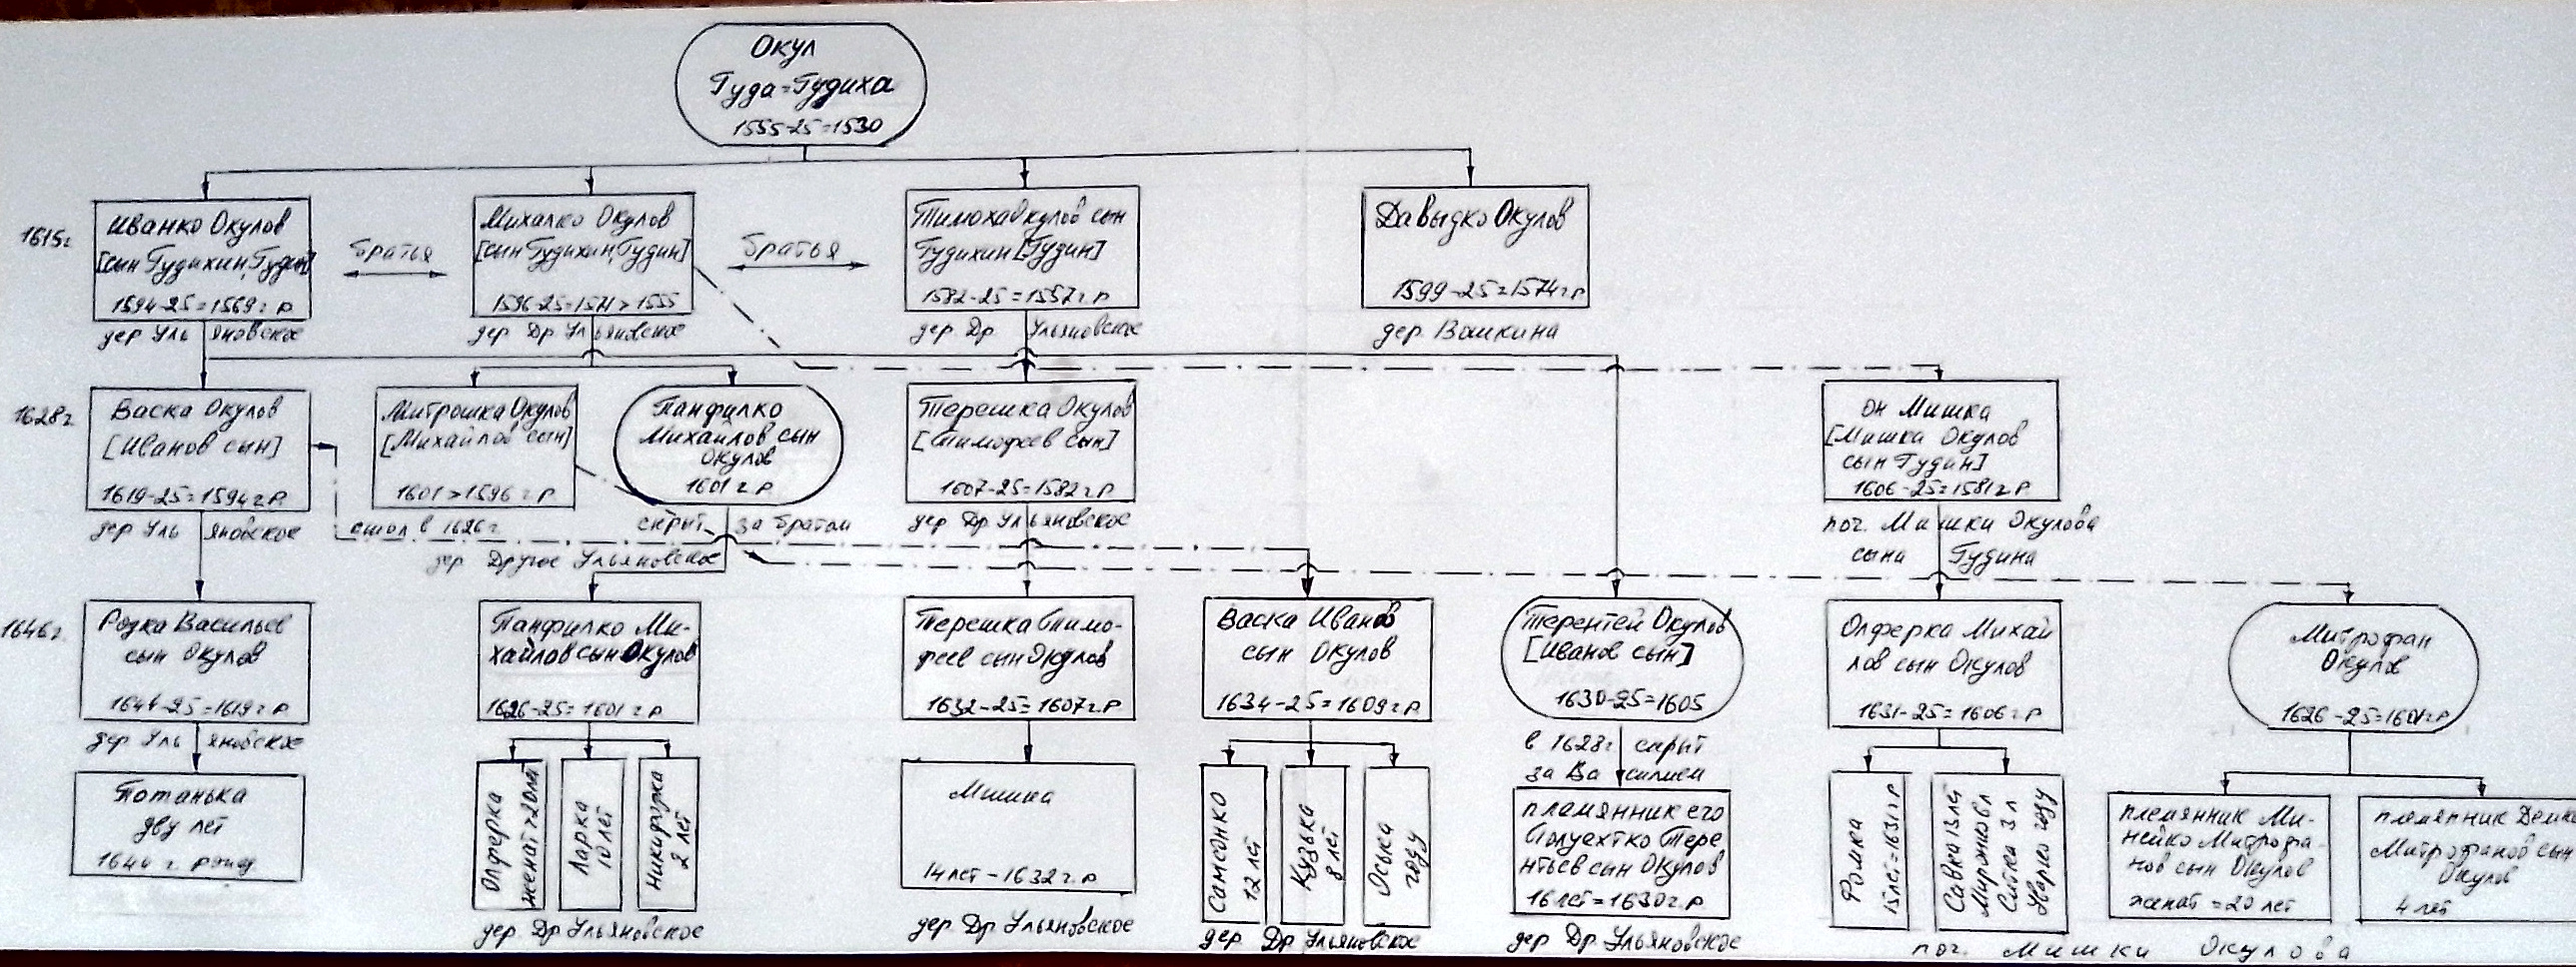 Окул
Гуда=Гудиха
1555-25=1530
1615г.
Иванко Окулов
[сын Гудихин, Гудин]
1594-25=1569 г.р
дер Ульяновское
братья
Михалко Окулов
[сын Гудихин, Гудин]
1596-25=1571 > 1555
дер Др Ульяновское
братья
Тимоха Окулов сын
Гудихин [Гудин]
1582-25=1557 г.р
дер. Др. Ульяновское
Давыдко Окулов
1599-25=1574 г.р
дер. Вашкина
1628г.
Васка Окулов
[Иванов сын]
1619-25=1594 г.р.
дер Ульяновское
сошол в 1626 г.
Митрошка Окулов
[Михайлов сын]
1601 > 1596 г.р
Панфилко
Михайлов сын
Окулов
1601 г.р
скрыт за братом
дер Другое Ульяновское
Терешка Окулов
[Тимофеев сын]
1607-25=1582 г.р
дер Др Ульяновское
он Мишка
[Мишка Окулов
сын Гудин]
1606-25=1581 г.р
поч. Мишки Окулова
сына Гудина
1646г.
Родка Васильев
сын Окулов
1644-25=1619 г.р
дер Ульяновское
Панфилко Ми-
хайлов сын Окулов
1626-25=1601 г.р
Терешка Тимо-
феев сын Окулов
1632-25=1607 г.р
Васка Иванов
сын Окулов
1634-25=1609 г.р
Терентей Окулов
[Иванов сын]
1630-25=1605
в 1628 г скрыт
за Василием
Олферка Михай
лов сын Окулов
1631-25=1606 г.р
Митрофан
Окулов
1626-25=1601 г.р
Потанька
дву лет
1644 г. рожд
Олферка
женат >20 лет
Ларка
10 лет
Никифорка
2 лет
дер. Др Ульяновское
Мишка
14 лет - 1632 г.р
дер. Др Ульяновское
Самсонко
12 лет
Кузька
8 лет
Оська
году
дер Др Ульяновское
племянник его
Полуехтко Тере
нтьев сын Окулов
16 лет = 1630 г.р
дер Др. Ульяновское
Фомка
15 лет = 1631 г.р
Савка 13 лет
Миронко 6 л
Ситка 3 л
Уварко году
племянник Ми-
нейко Митрофа-
нов сын Окулов
женат = 20 лет
племянник Демка
Митрофанов сын
Окулов
4 лет
поч. Мишки Окулова